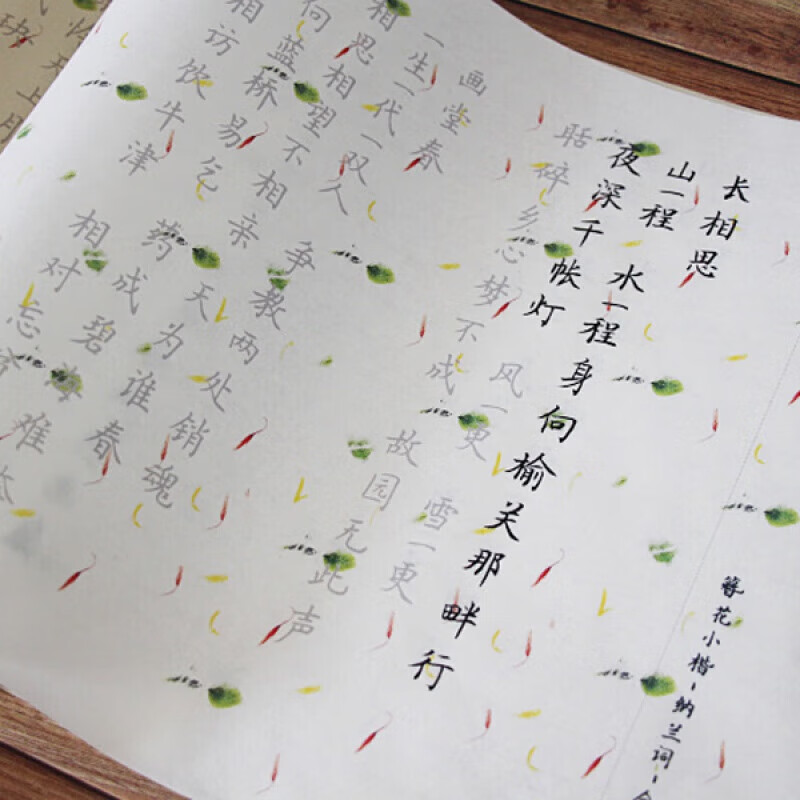 长相思
山一程 水一程 身向榆关那畔行
夜深千帐灯 风一更 雪一更
聒碎乡心梦不成 故园无此声
画堂春
一生一代一双人 争教两处销魂
相思相望不相亲 天为谁春
向蓝桥易乞 药成碧海难
相访饮牛津 相对忘
天上月
玦
簪花小楷-纳兰词-